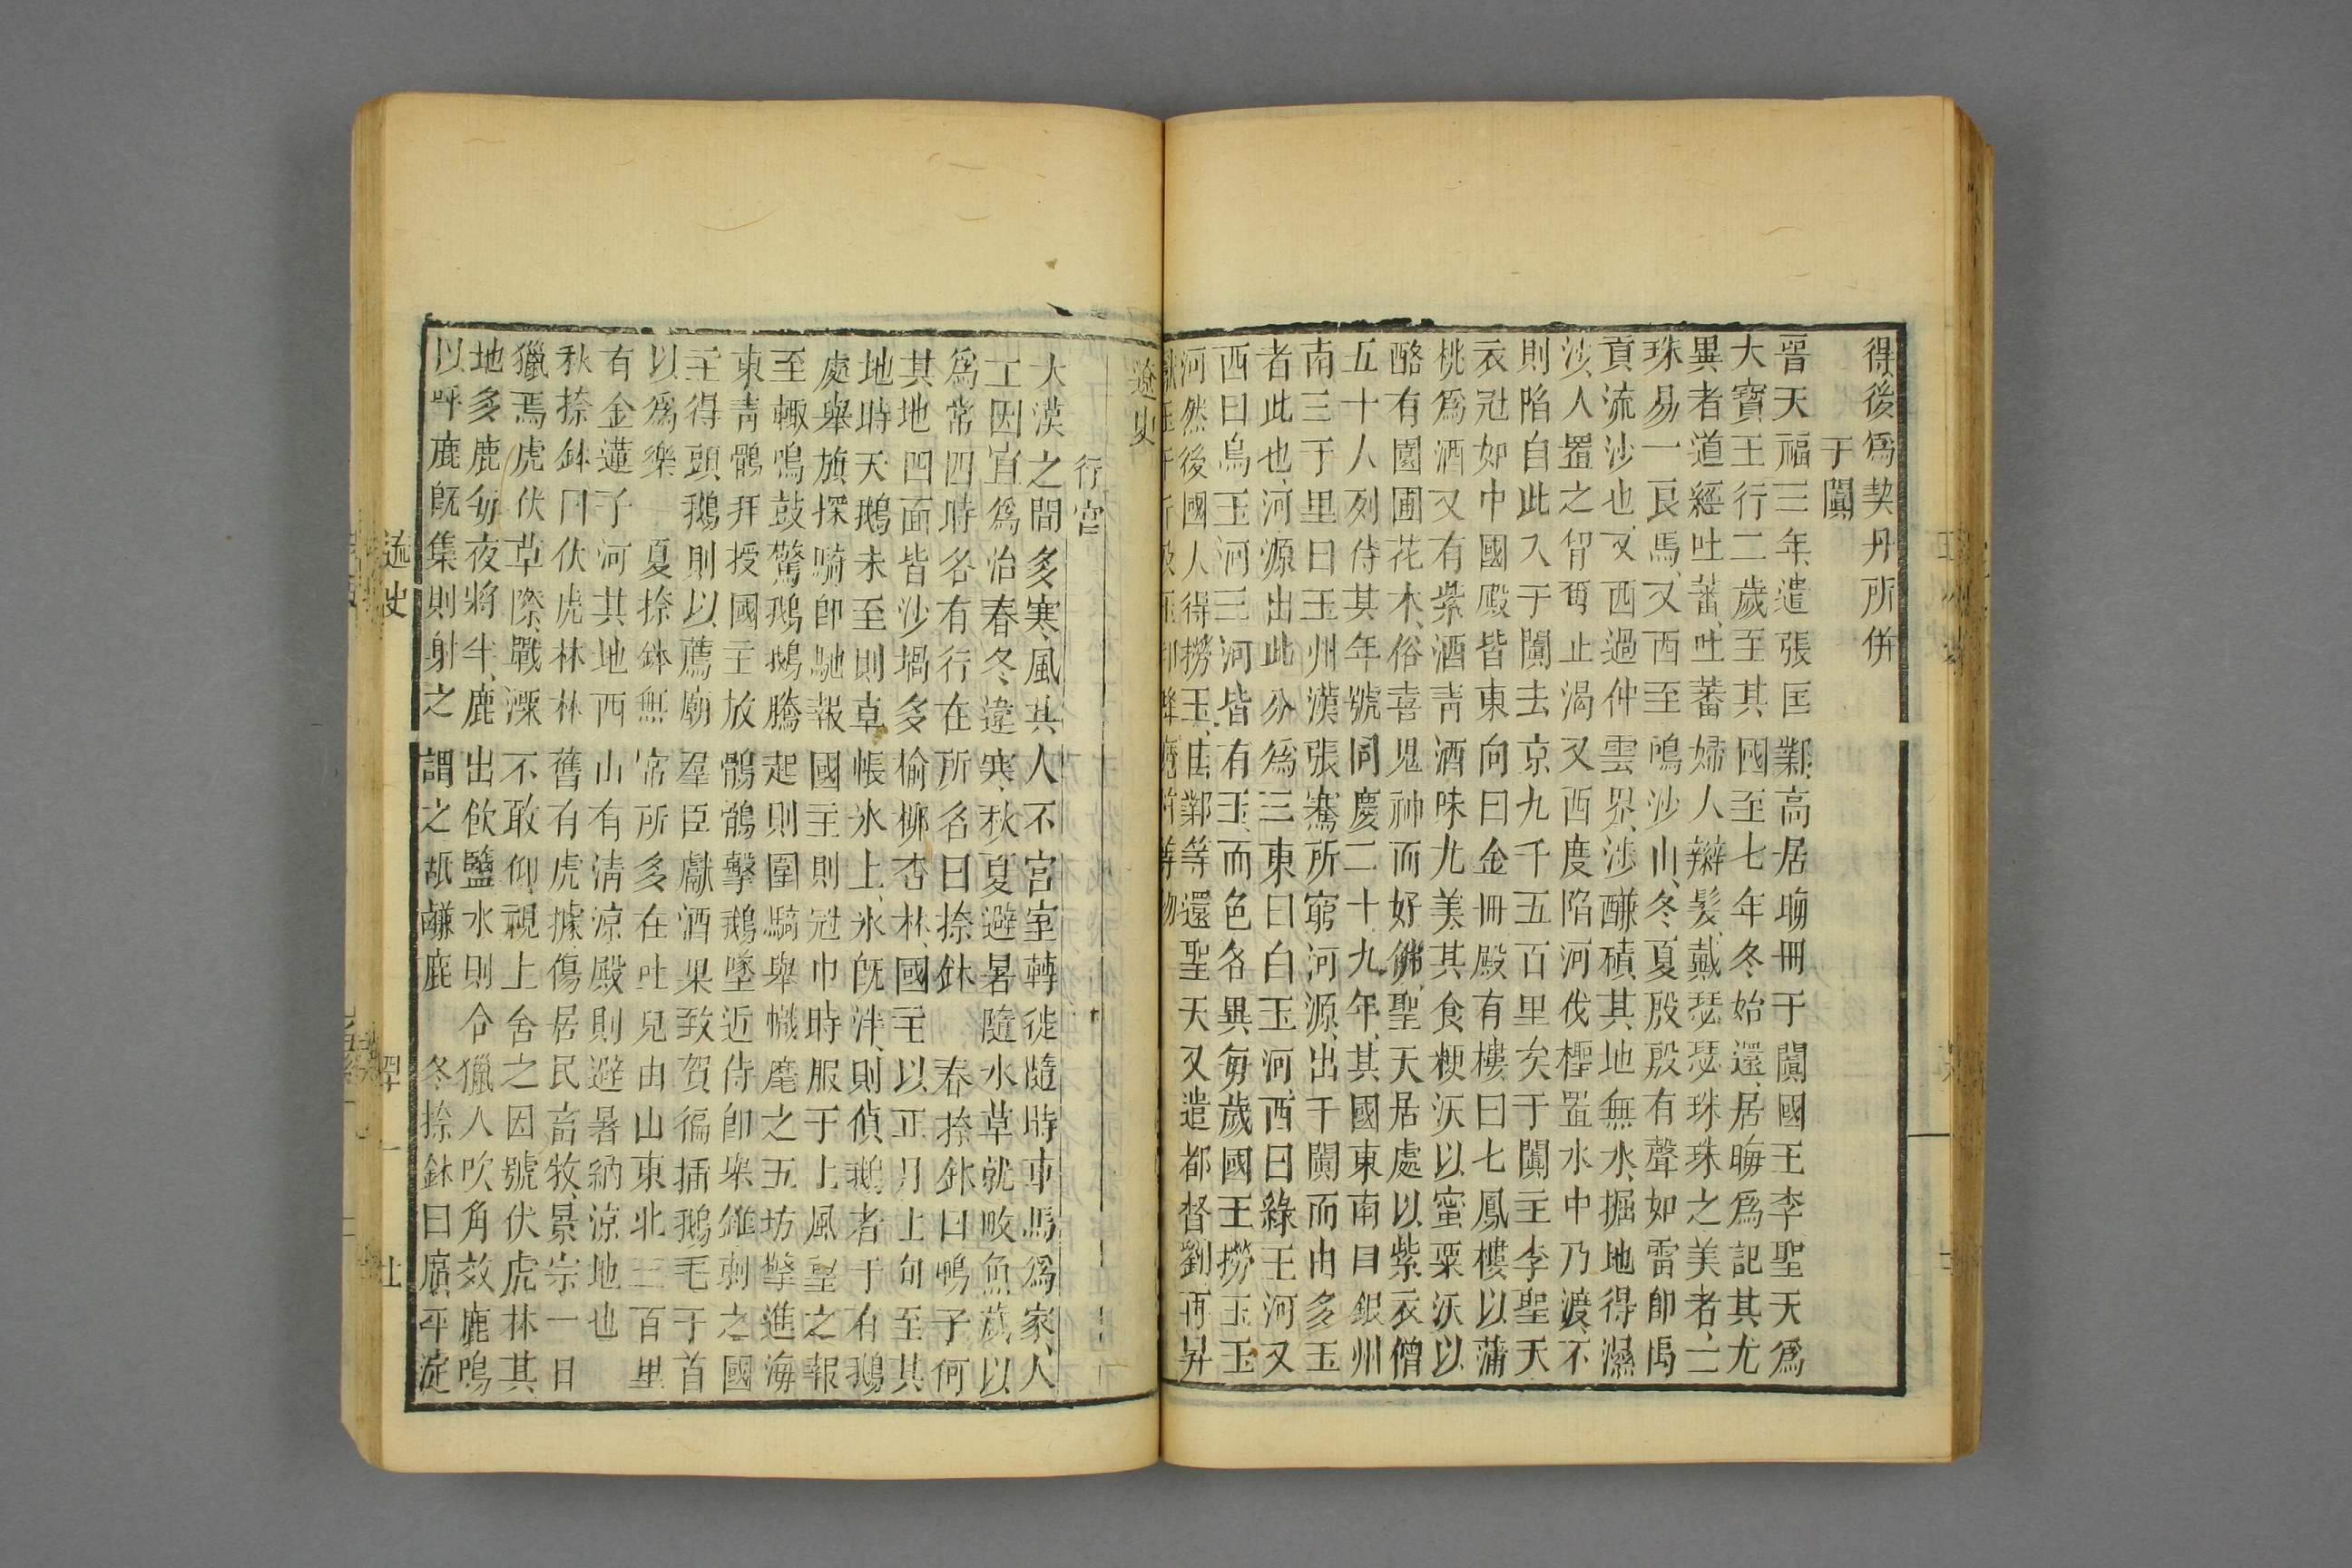 得後爲契丹所併
于闐
晉天福三年遣張匡鄴高居晦冊于闐國王李聖天爲
大寶王行二歲至其國至七年冬始還居晦爲記其尤
異者道經吐蕃吐蕃婦人辮髮戴瑟瑟珠珠之美者一
珠易一良馬又西至鳴沙山冬夏殷殷有聲如雷卽禹
貢流沙也又西過仲雲界涉醎磧其地無水掘地得濕
沙人置之胷爾止渴又西度陷河伐檉置水中乃渡不
則陷自此入于闐去京九千五百里矣于闐主李聖天
衣冠如中國殿皆東向曰金冊殿有樓曰七鳳樓以蒲
桃爲酒又有紫酒青酒味尤美其食粳沃以蜜粟沃以
酪有園圃花木俗喜鬼神而好佛聖天居處以紫衣僧
五十人列侍其年號同慶二十九年其國東南曰銀州
南三千里曰玉州漢張騫所窮河源出于闐而由多玉
者此也河源出此分爲三東曰白玉河西曰綠玉河又
西曰烏玉河三河皆有玉而色各異每歲國王撈玉玉
河然後國人得撈玉匡鄴等還聖天又遣都督劉再昇
遼史
行宮
大漠之間多寒風其人不宮室轉徙隨時車馬爲家人
工因宜爲治春冬違寒秋夏避暑隨水草就畋魚歲以
爲常四時各有行在所名曰捺鉢 春捺鉢曰鴨子河
其地四面皆沙堝多榆柳杏林國主以正月上旬至其
地時天鵝未至則卓帳氷上氷旣泮則偵鵝者于有鵝
處舉旗探騎卽馳報國主則冠巾時服于上風望之報
至輙鳴鼓驚鵝鵝騰起則圍騎舉幟麾之五坊擎進海
東青鶻拜授國主放鶻鶻擊鵝墜近侍卽舉錐刺之國
主得頭鵝則以薦廟羣臣獻酒果致賀徧插鵝毛于首
以爲樂 夏捺鉢無常所多在吐兒由山東北三百里
有金蓮子河其地西山有清涼殿則避暑納涼地也
秋捺鉢曰伏虎林林舊有虎據傷居民畜牧景宗一日
獵焉虎伏草際戰慄不敢仰視上舍之因號伏虎林其
地多鹿每夜將半鹿出飲鹽水則令獵人吹角效鹿鳴
以呼鹿旣集則射之謂之舐鹻鹿 冬捺鉢曰廣平淀